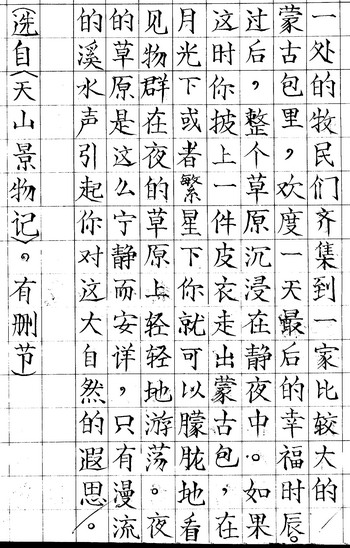 一处的牧民们齐集到一家比较大的
蒙古包里，欢度一天最后的幸福时辰。
过后，整个草原沉浸在静夜中。如果
这时你披上一件皮衣走出蒙古包，在
月光下或者繁星下你就可以朦胧地看
见物群在夜的草原上轻轻地游荡。夜
的草原是这么宁静而安详，只有漫流
的溪水声引起你对这大自然的遐思。
(选自〈天山景物记〉。有删节)